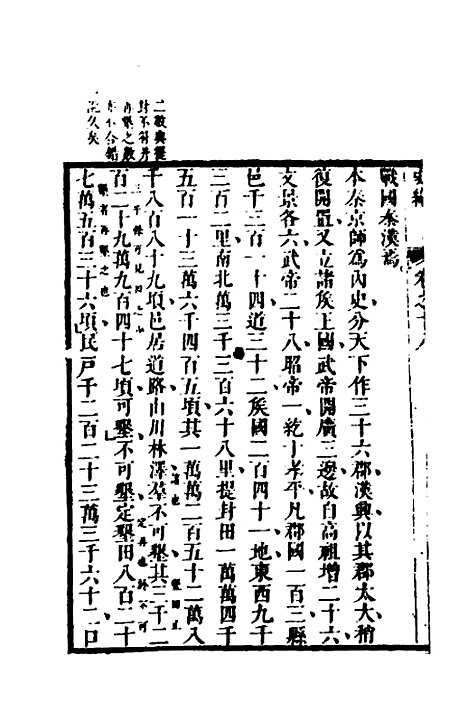 二數與提
封不符并
之數
不合錯
久矣
戰國秦漢焉
本秦京師為內史分天下作三十六郡漢興以其郡太大稍
復開置又立諸侯王國武帝開廣三邊故自高祖增二十六
文景各六武帝二十八昭帝一訖于孝平凡郡國一百三縣
邑千三百一十四道三十二侯國二百四十一地東西九千
三百二里南北萬三千三百六十八里提封田一萬萬四千
五百一十三萬六千四百五頃其一萬萬二百五十二萬八
千八百八十九頃邑居道路山川林澤羣不可墾其三千二
百二十九萬九百四十七頃可墾不可墾定墾田八百二十
七萬五百三十六頃民戶千二百二十三萬三千六十二口